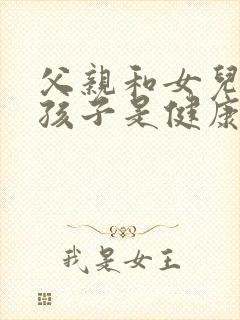 父親和女兒
孩子是健康
我是女王